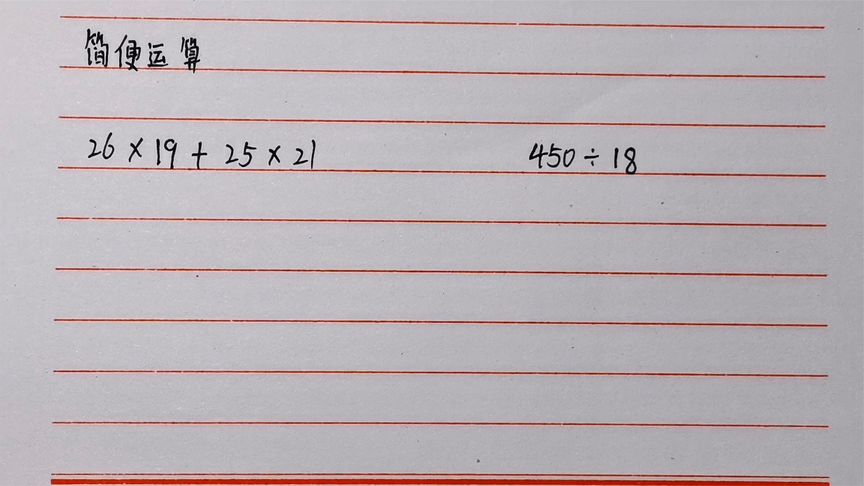 简便运算
26 × 19 + 25 × 21 450 ÷ 18